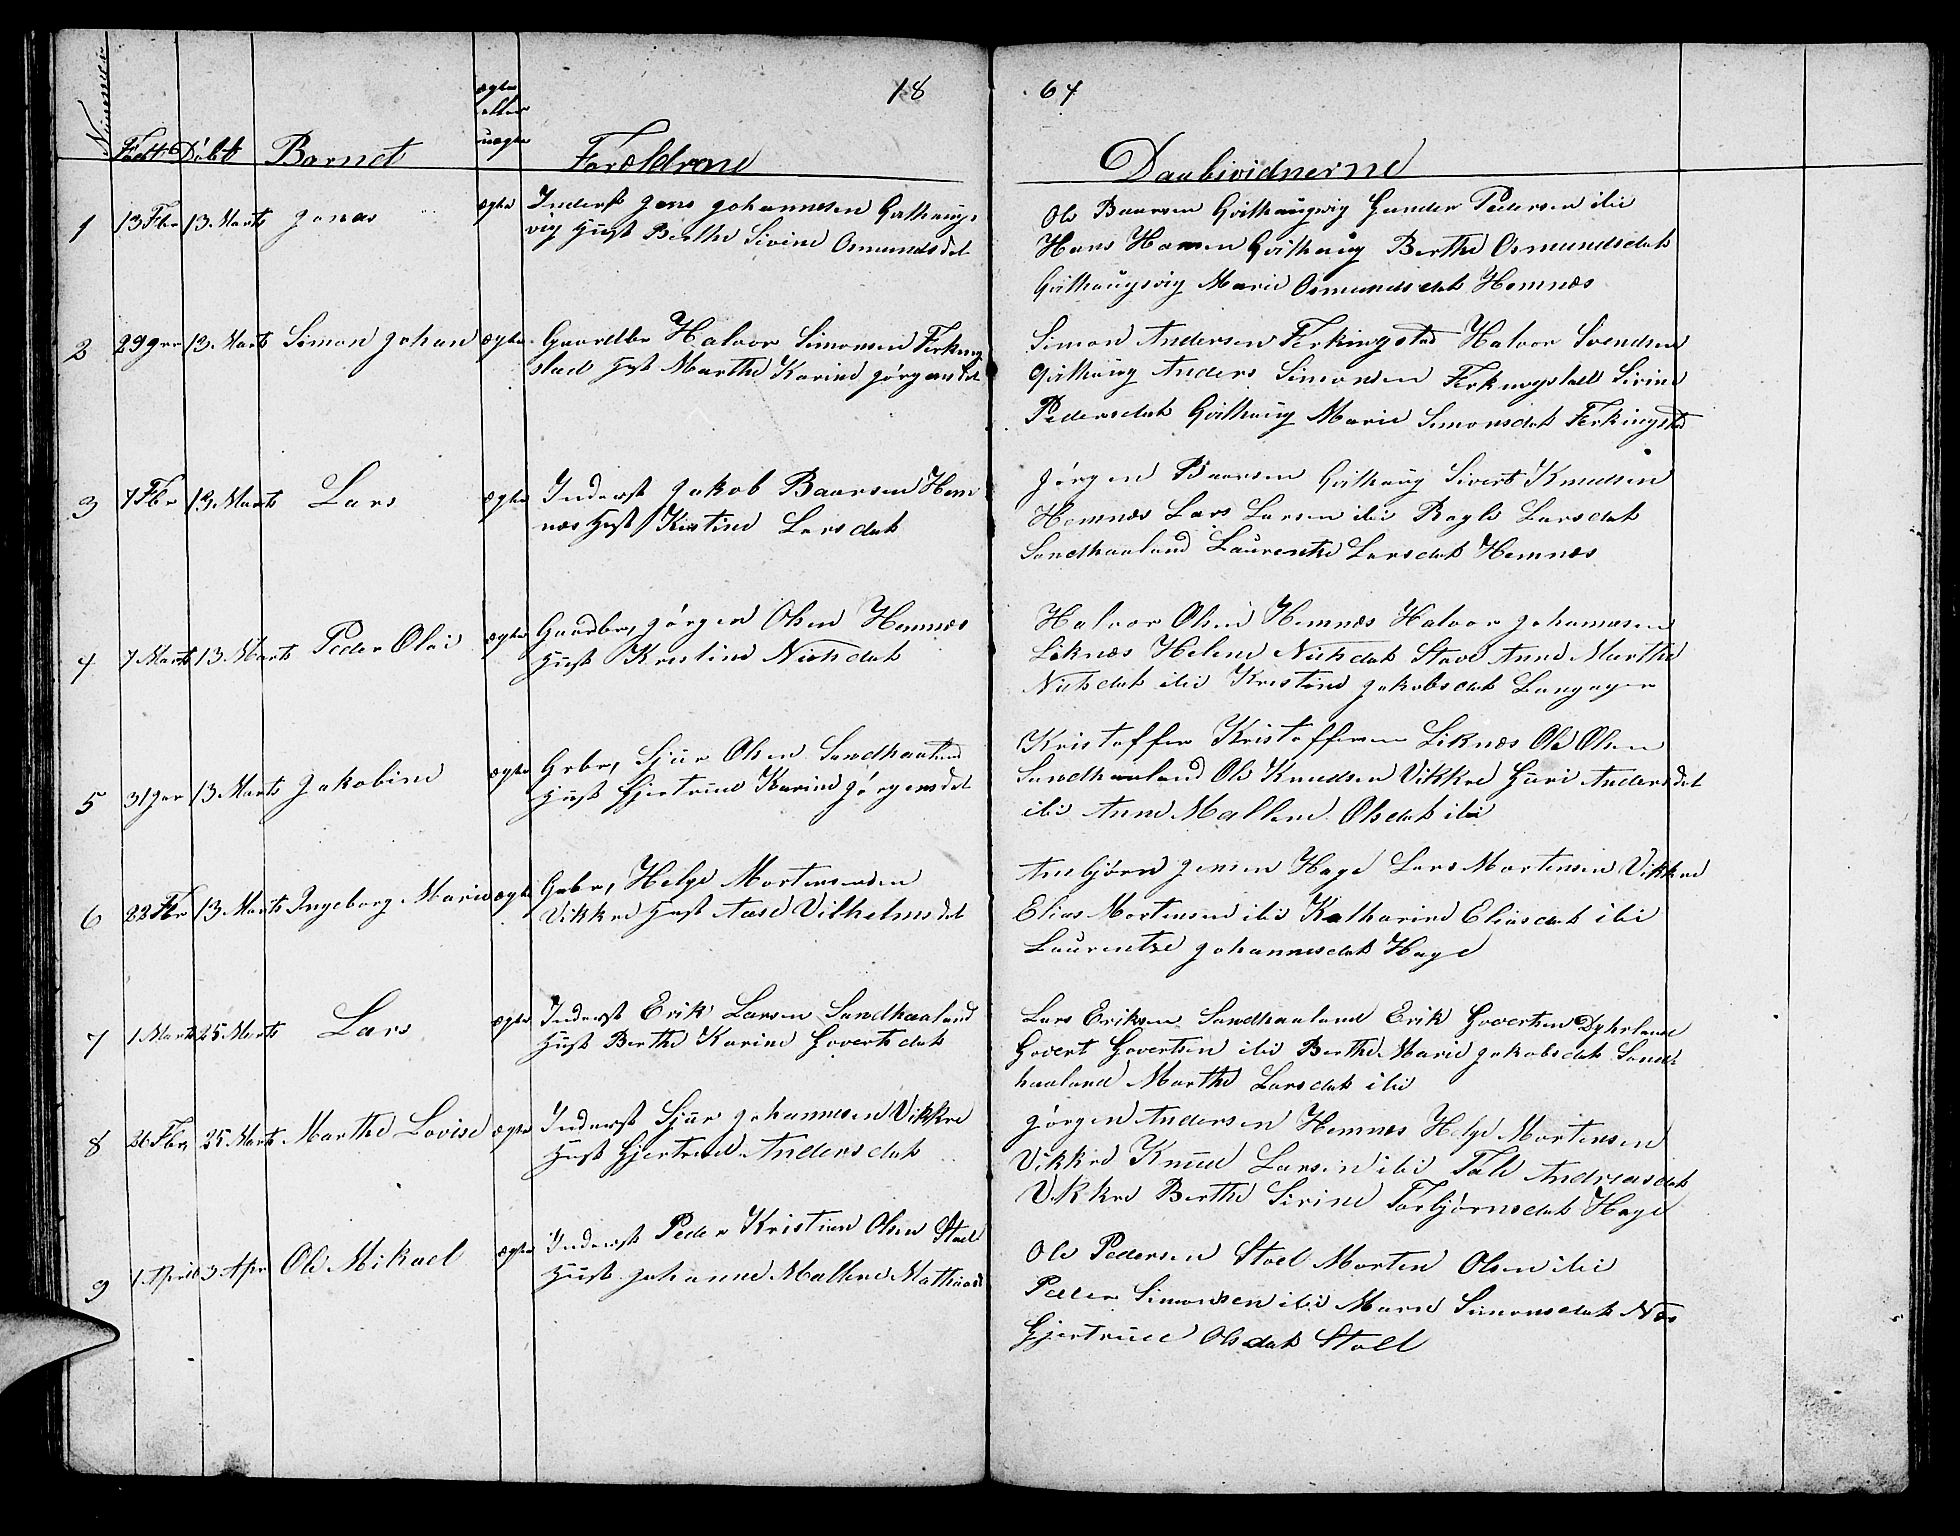 18 64
Nummer Født Döbt Barnet ægte eller uægte Forældrene Daubsvidnerne
1 13 Fbr 13 Marts Jonas ægte Inderst Jens Johannesen Qvilhaugs
vig Hust Berthe Sivine Osmundsdet
Ole Baarsen Qvilhaugvig Gunder Pedersen ibi
Hans Hansen Qvilhaug Berthe Osmundsdat
Qvilhaugsvig Marie Osmundsdat Hemnæs
2 29 Jan 13 Marts Simon Johan ægte Gaardbr Halvor Simonsen Ferking
stad Hst Marthe Karine Jørgensdet
Simon Andersen Ferkingstad Halvor Svendsen
Qvilhaug Anders Simonsen Ferkingstad Sirine
Pedersdat Qvilhaug Marie Simonsdat Ferkingstad
3 7 Fbr 13 Marts Lars ægte Inderst Jakob Baarsen Hem
næs Hust Kirstine Larsdat
Jørgen Baarsen Qvilhaug Sivert Knudsen
Hemnæs Lars Larsen ibi Ragle Larsdat
Sandhaaland Laurentze Larsdat Hemnæs
4 7 Marts 13 Marts Peder Olai ægte Gaardbr, Jørgen Olsen Hemnæs
Hust Kristine Nielsdat
Halvor Olsen Hemnæs Halvor Johannesen
Liknæs Helene Nielsdat Stave Anne Marthe
Nielsdat ibi Kristine Jakobsdat Langager
5 31 Jan 13 Marts Jakobine ægte Grbr, Sjur Olsen Sandhaaland
Hust Gjertrude Karine Jørgensdet
Kristoffer Kristoffersen Liknæs Ole Olsen
Sandhaaland Ole Knudsen Vikkre Guri Andersdet
ibi Anne Mallene Olsdat ibi
6 22 Fbr 13 Marts Ingeborg Marie ægte Grbr, Helge Mortensen
Vikkre Hust Aase Vilhelmsdet
Anbjørn Jensen Hage Lars Mortensen Vikkre
Elias Mortensen ibi Katharine Eliasdat ibi
Laurentze Johannesdat Hage
7 1 Marts 25 Marts Lars ægte Inderst Erik Larsen Sandhaaland
Hust Berthe Karine Govertsdat
Lars Eriksen Sandhaaland Erik Govertsen Dyhrland
Govert Govertsen ibi Berthe Marie Jakobsdat Sand
haaland Marthe Larsdat ibi
8 26 Fbr 25 Marts Marthe Lovise ægte Inderst Sjur Johannesen Vikkre
Hust Gjertrud Andersdat
Jørgen Andersen Hemnæs Helge Mortensen
Vikkre Knud Larsen ibi Tale Andreasdat
Vikkre Berthe Sirine Torbjørnsdat Hage
9 1 April 3 Apr Ole Mikael ægte Inderst Peder Kristian Olsen Stoel
Hust Johanne Mallene
Ole Pedersen Stoel Morten Olsen ibi
Peder Simonsen ibi Maren Simonsdat Næs
Gjertrude Olsdat Stoel